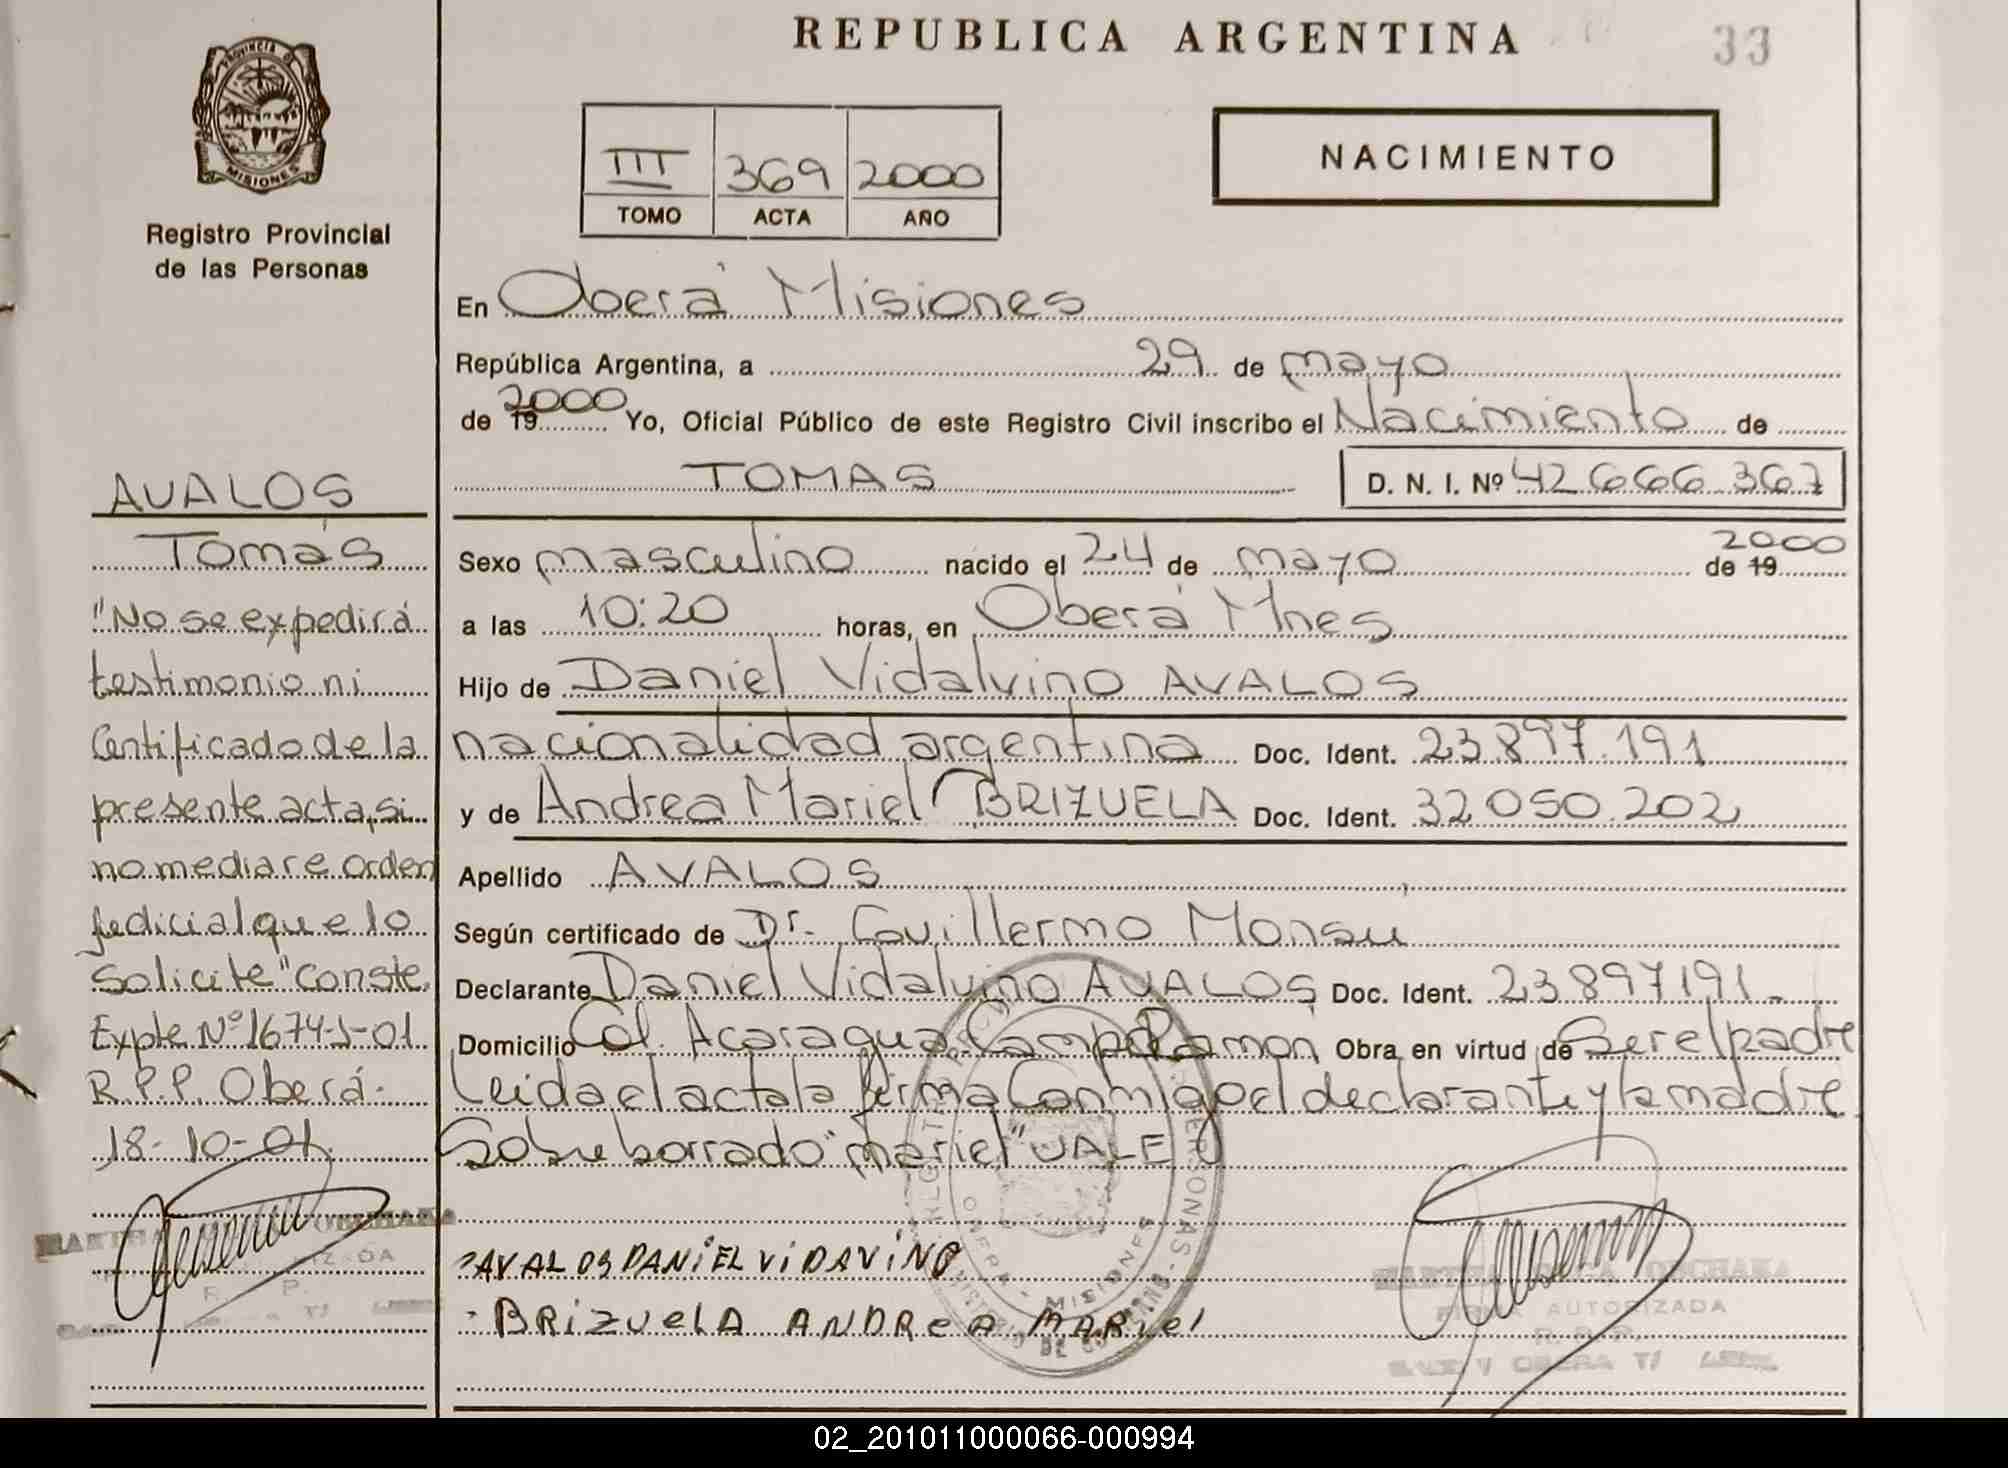 REPUBLICA ARGENTINA
33
PROVINCIA DE
MISIONES
Registro Provincial
de las Personas
III 369 2000
TOMO ACTA AÑO
NACIMIENTO
En Oberá Misiones
República Argentina, a 29 de mayo
de 19 2000 Yo, Oficial Público de este Registro Civil inscribo el Nacimiento de
TOMAS D. N. I. Nº 42 666 367
Sexo masculino nacido el 24 de mayo de 19 2000
a las 10:20 horas, en Oberá Mnes
Hijo de Daniel Vidalvino AVALOS
nacionalidad argentina Doc. Ident. 23.897.191
y de Andrea Mariel BRIZUELA Doc. Ident. 32 050.202
Apellido AVALOS
Según certificado de Dr. Guillermo Monsu
Declarante Daniel Vidalvino AVALOS Doc. Ident. 23 897191
Domicilio Col. Acaragua Campo Ramon Obra en virtud de Ser el padre
Leida el acta la firma Conmigo el declarante y la madre
Sobre borrado "mariel" VALE
AVALOS DANIEL ViDAViNO
BRizuelA ANDReA MARiel
AVALOS
Tomás
"No se expedirá
testimonio ni
Certificado de la
presente acta, si
no mediare orden
judicial que lo
solicite" Conste.
Expte Nº 1674-J-01
R.P.P. Oberá-
18-10-01
MISIONES
AUTORIZADA
02_201011000066-000994